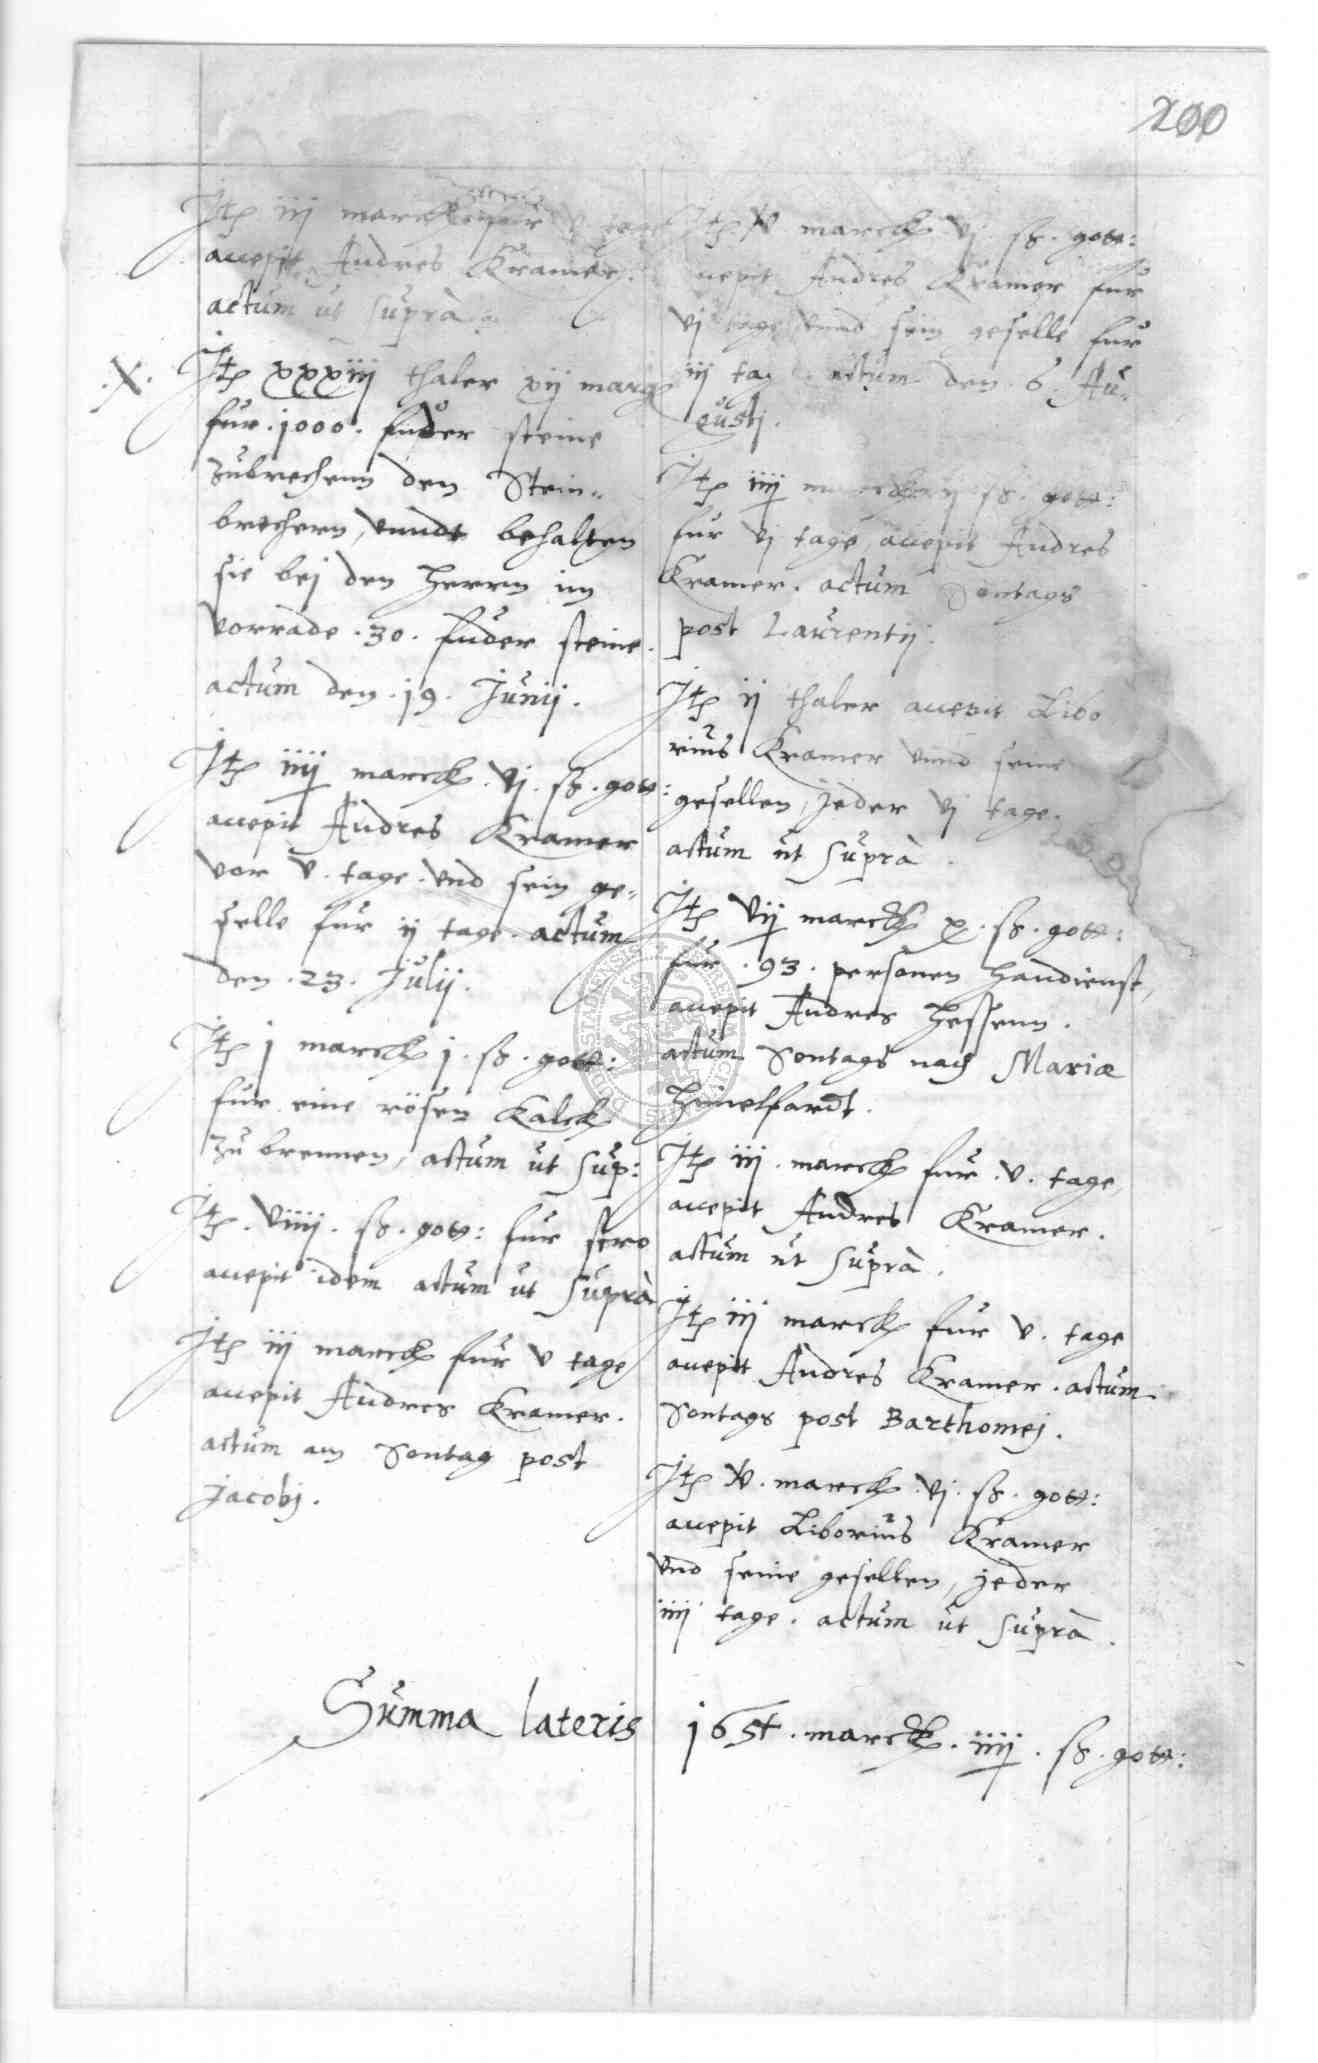 200
Jtem iij marck vor v tage
accepit Andres Kramer.
actum ut suprà.
.X.
Jtem xxxiij thaler xij marg
fur .1000. fuder steine
zubrechenn den Stein„
brechern, vnndt behalten
sie bej den Herrn im
vorrade .30. fuder steine.
actum den .19. Junij.
Jtem iiij marck .vj. sß. gott:
accepit Andres Kramer
vor v. tage. vnd sein ge„
selle fur ij tage. actum
den .23. Julij.
Jtem j marck j. sß. gott:
fur eine rösen Kalck
zu brennen, actum ut sup:
Jtem .viiij. sß. gott: fur stro
accepit idem actum ut suprà
Jtem iij marck fur v tage
accepit Andres Kramer.
actum am Sontag post
Jacobj.
Jtem v marck vj sß. gott:
accepit Andres Kramer fur
vj tage vnnd sein geselle fur
iij tag actum den .6. Au„
gustj.
Jtem iiij marck ij sß. gott:
fur vj tage, accepit Andres
Kramer. actum Sontags
post Laurentij.
Jtem ij thaler accepit Libo
rius Kramer vnnd seine
gesellen, jeder vj tage.
actum ut suprà.
Jtem vij marck x. sß. gott:
fur .93. personen handienst,
accepit Andres Hessenn.
actum Sontags nach Mariæ
Himelfardt.
Jtem iij. marck fur .v. tage,
accepit Andres Kramer.
actum ut suprà.
Jtem iij marck fur v. tage
accepit Andres Kramer. actum
Sontags post Barthomej.
Jtem v. marck .vj. sß. gott:
accepit Liborius Kramer
vnd seine gesellen, jeder
iiij tage. actum ut suprà.
Summa lateris 165½. marck. iiij. sß. gott: